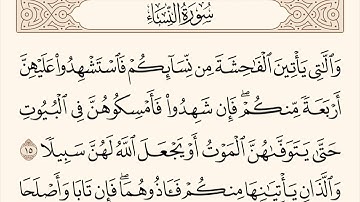 سُورَةُ النِّسَاءِ
وَٱلَّٰتِى يَأۡتِينَ ٱلۡفَٰحِشَةَ مِن نِّسَآئِكُمۡ فَٱسۡتَشۡهِدُواْ عَلَيۡهِنَّ
أَرۡبَعَةٗ مِّنكُمۡۖ فَإِن شَهِدُواْ فَأَمۡسِكُوهُنَّ فِى ٱلۡبُيُوتِ
حَتَّىٰ يَتَوَفَّىٰهُنَّ ٱلۡمَوۡتُ أَوۡ يَجۡعَلَ ٱللَّهُ لَهُنَّ سَبِيلٗا ١٥
وَٱلَّذَانِ يَأۡتِيَٰنِهَا مِنكُمۡ فَـَٔاذُوهُمَاۖ فَإِن تَابَا وَأَصۡلَحَا